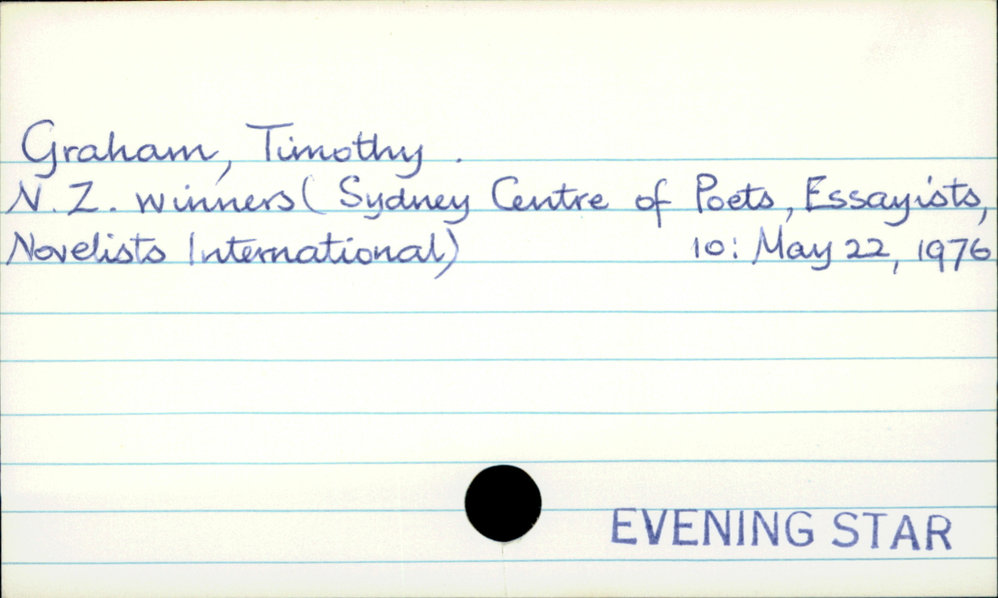 Graham, Timothy.
N.Z. winners (Sydney Centre of Poets, Essayists,
Novelists International) 10: May 22, 1976
EVENING STAR